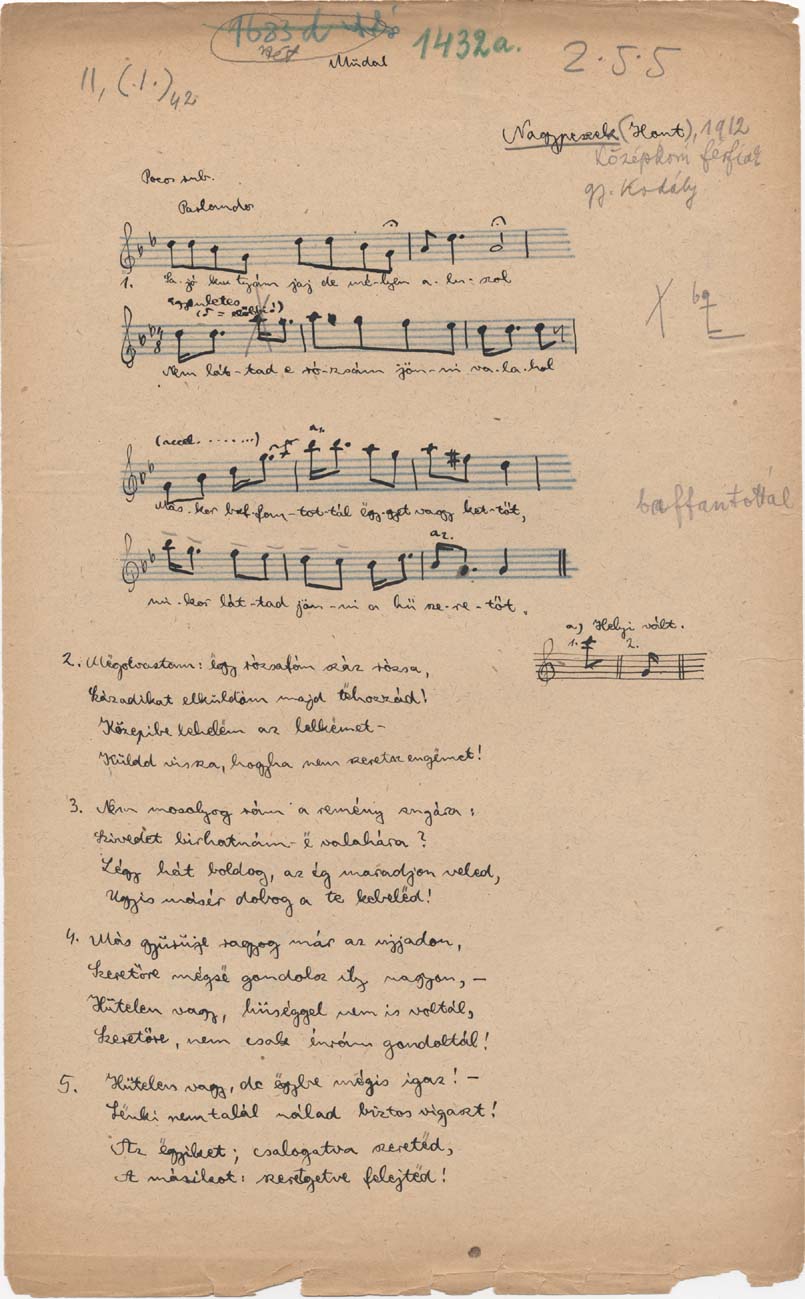 1432a.
Műdal
II, (.I.)42
2.5.5
Nagypeszek (Hont), 1912
Középkorú férfiak
gy. Kodály
Poco rub.
Parlando
1. Sa-jó ku-tyám jaj de mé-lyen a-lu-szol
egyenletes
Nem lát-tad e ró-zsám jön-ni va-la-hol
(accel. .......) a1.
Más-kor baf-fan-tot-tál ëgy-gyet vagy ket-tőt,
a2.
mi-kor lát-tad jön-ni a hű sze-re-tőt.
baffantottál
a) Helyi vált.
1. 2.
2. Mëgolvastam: ëgy rózsafán száz rózsa,
Századikat elküldöm majd tëhozzád!
Közepibe lehelém az lelkëmet –
Küldd vissza, hogyha nem szeretsz engëmet!
3. Nem mosolyog rám a remény sugára:
Szivedët birhatnám-ë valahára?
Légy hát boldog, az ég maradjon veled,
Ugyis másér dobog a te kebelëd!
4. Más gyűrűje ragyog már az ujjadon,
Szeretőre mégsë gondolsz ily nagyon, –
Hűtelen vagy, hűséggel nem is voltál,
Szeretőre, nem csak énrám gondoltál!
5. Hűtelen vagy, de ëgybe mégis igaz! –
Sënki nem talál nálad biztos vigaszt!
Az ëgyiket; csalogatva szeretëd,
A másikot: szeretgetve felejtëd!